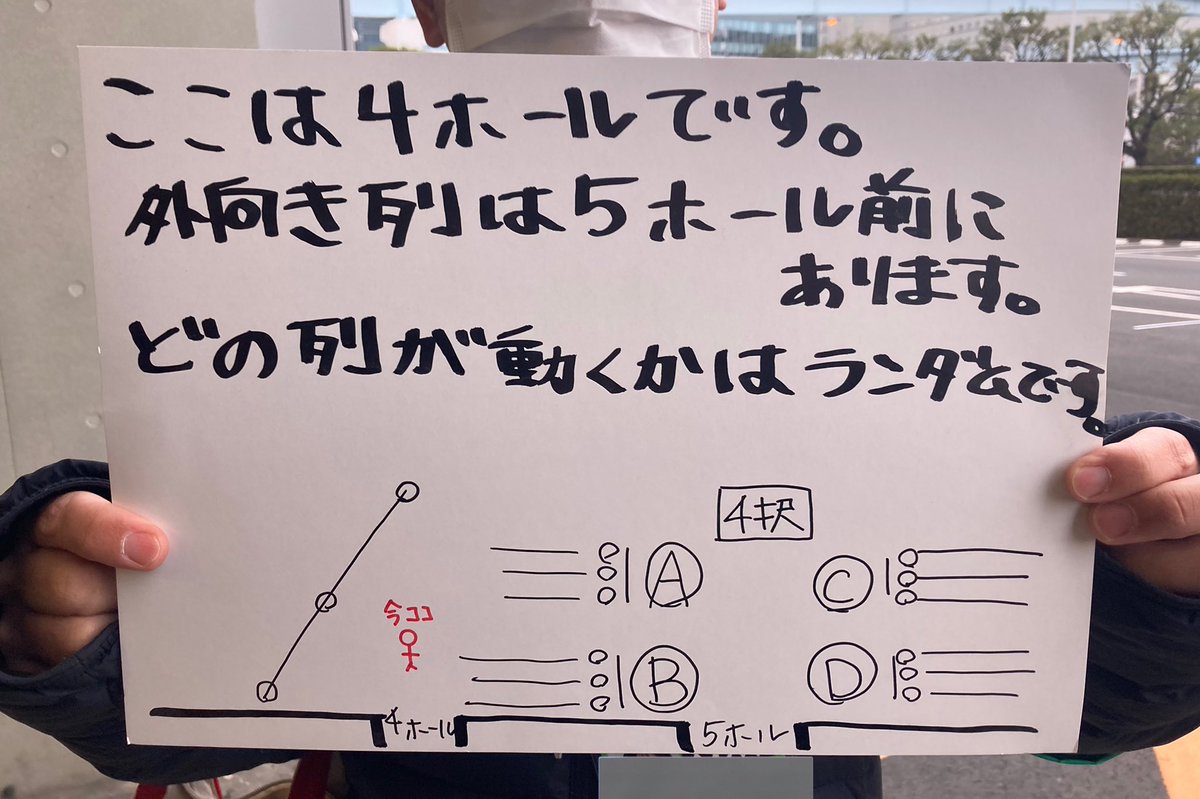 ここは4ホールです。
外向き列は5ホール前に
あります。
どの列が動くかはランダムです。
4択
A
C
今ココ
B
D
4ホール
5ホール